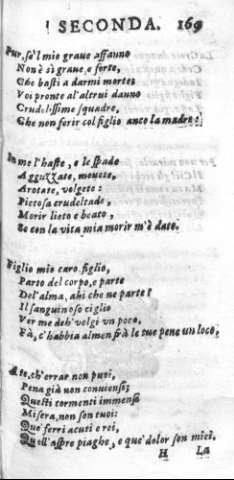 SECONDA. 169
Pur, se'l mio graue affanno
Non è sì graue, e forte,
Che basti a darmi morte;
Voi pronte al'altrui danno
Crudelissime squadre,
Che non ferir col figlio anco la madre?
In me l'haste, e le spade
Aguzzate, mouete,
Arotate, volgete:
Pietosa crudeltade,
Morir lieto e beato,
Se con la vita mia morir m'è dato.
Figlio mio caro figlio,
Parto del corpo, e parte
Del'alma, ahi che ne parte?
Il sanguinoso ciglio
Ver me deh volgi vn poco,
Fà, c'habbia almen frà le tue pene un loco,
A te, ch'errar non puoi,
Pena già non conuiensi;
Questi tormenti immensi
Misera, non son tuoi:
Que' ferri acuti e rei,
Quell'aspre piaghe, e que' dolor son miei.
H La